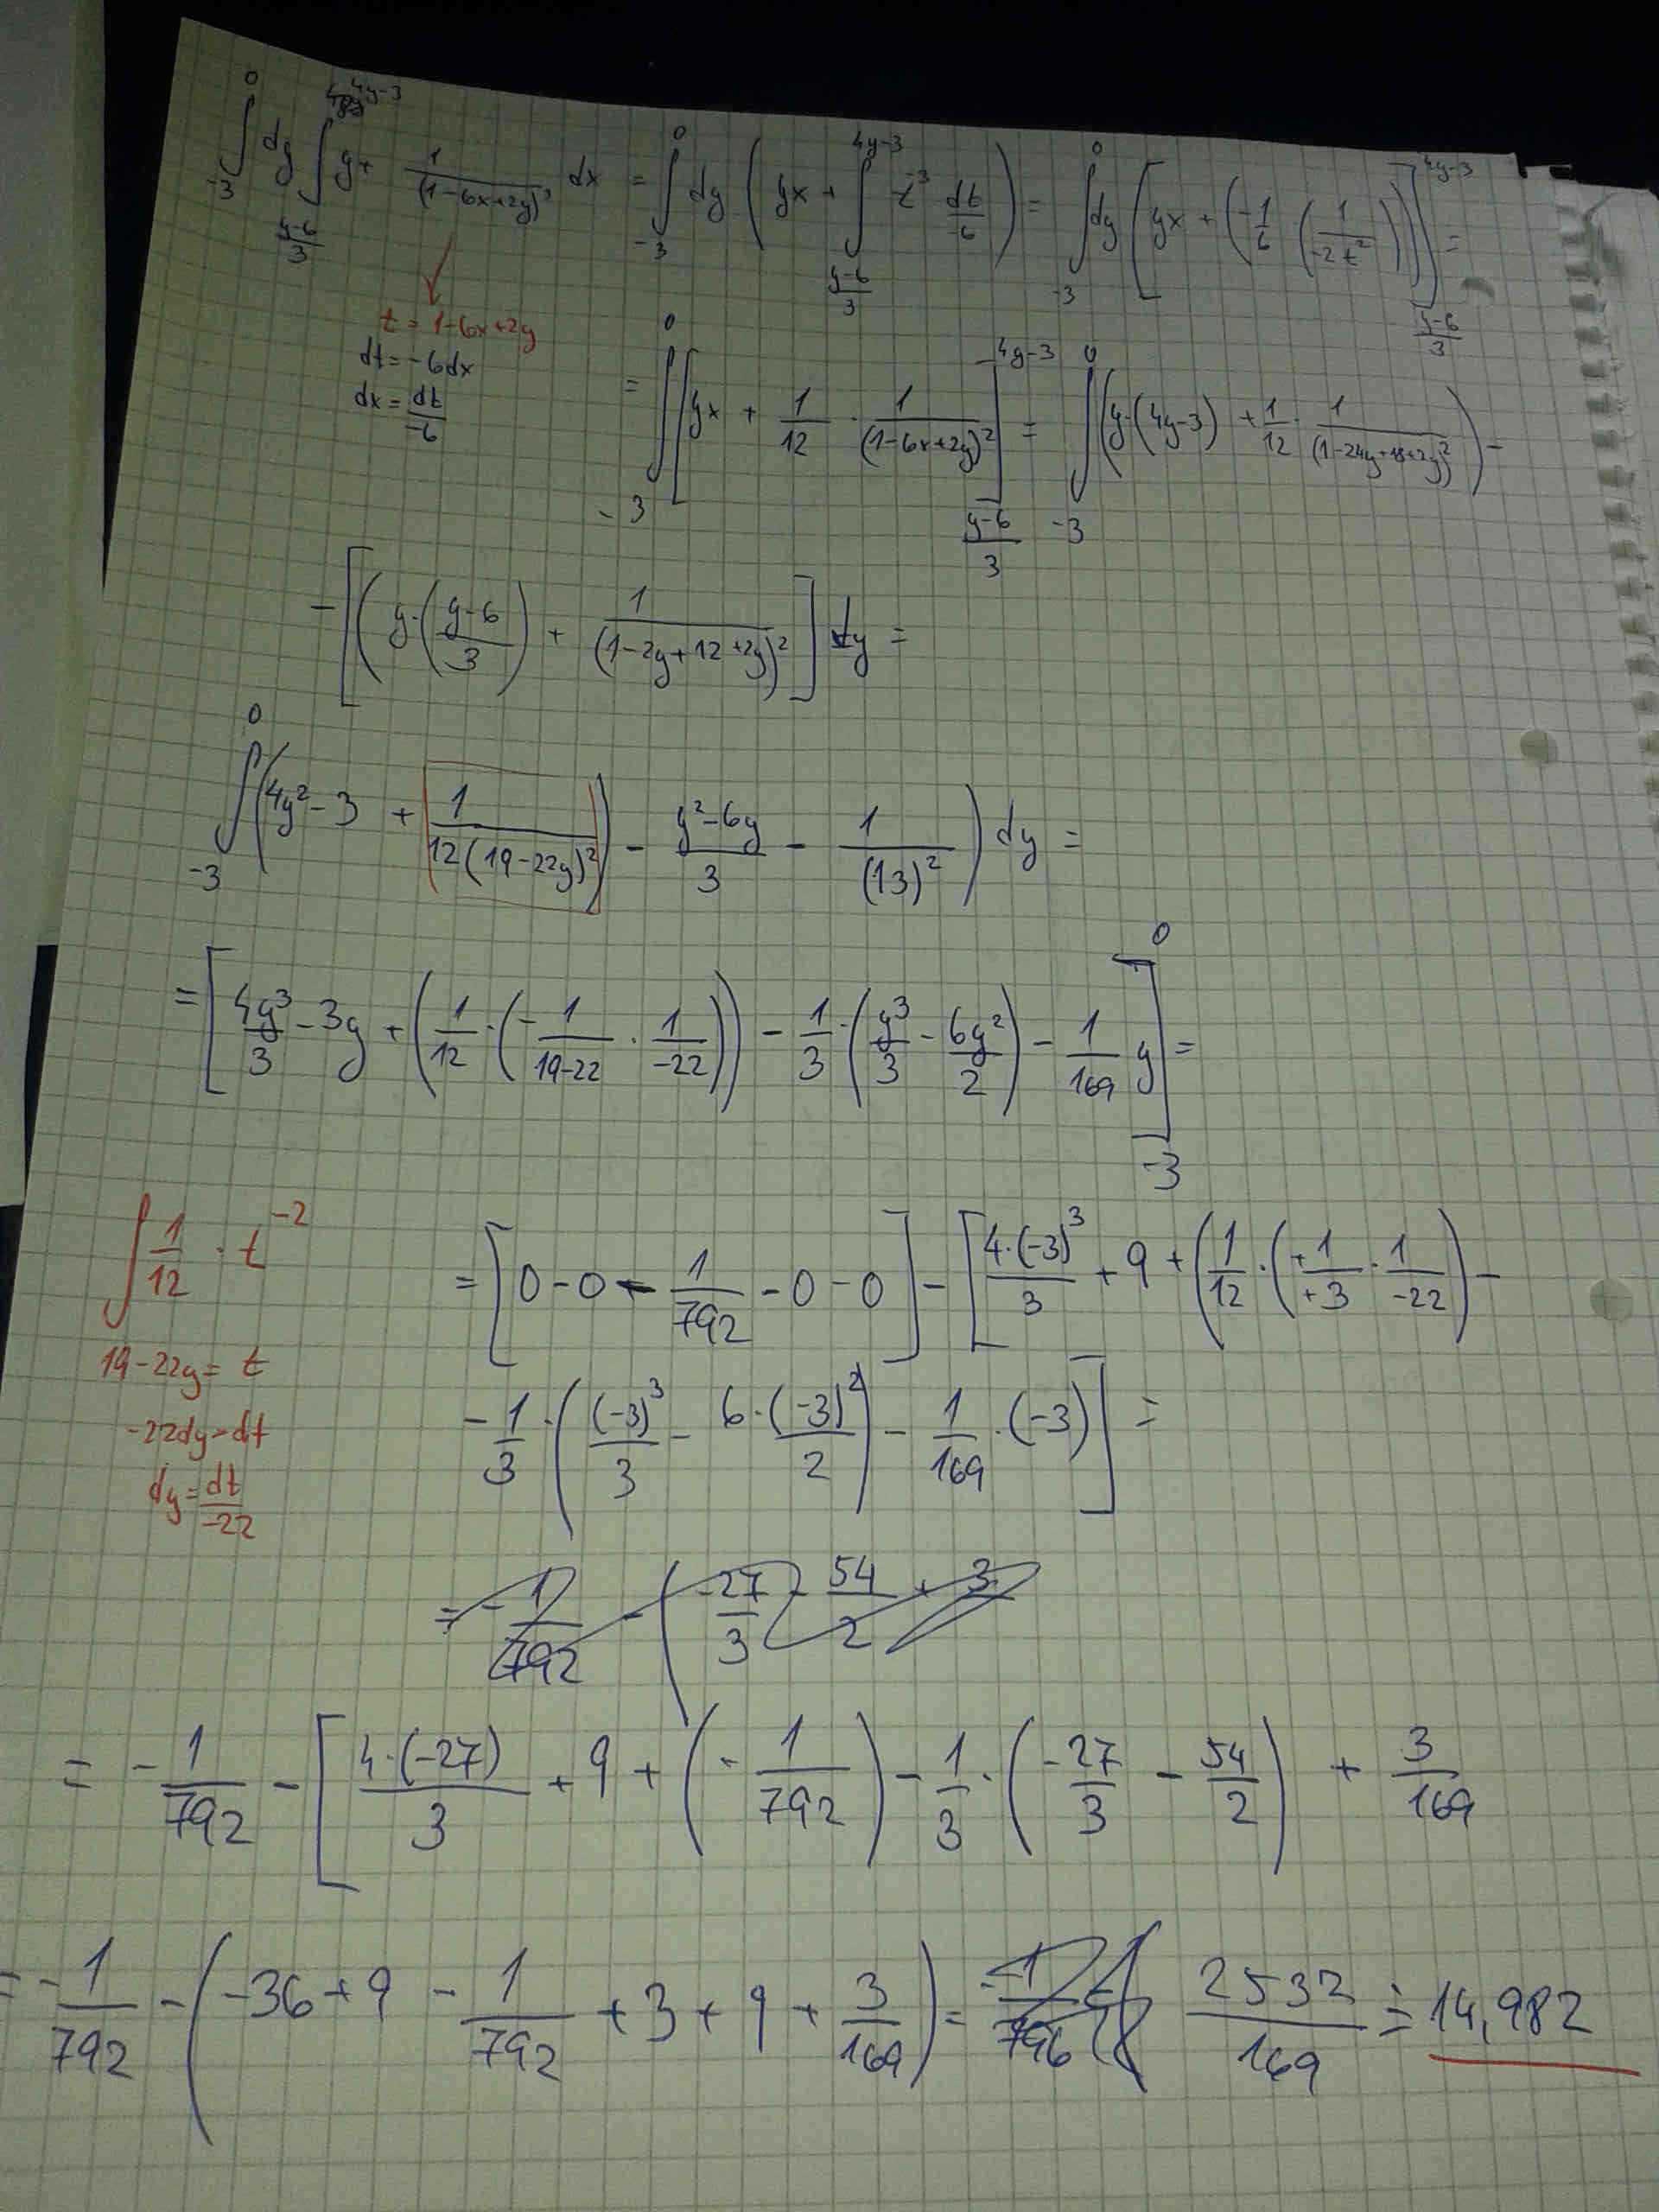 ∫_{-3}^{0} dy ∫_{\frac{y-6}{3}}^{4y-3} y + \frac{1}{(1-6x+2y)^3} dx = ∫_{-3}^{0} dy ( yx + ∫_{\frac{y-6}{3}}^{4y-3} t^{-3} \frac{dt}{-6} ) = ∫_{-3}^{0} dy [ yx + ( -\frac{1}{6} ( \frac{1}{-2t^2} ) ) ]_{\frac{y-6}{3}}^{4y-3} =
t = 1-6x+2y
dt = -6dx
dx = \frac{dt}{-6}
= ∫_{-3}^{0} [ yx + \frac{1}{12} · \frac{1}{(1-6x+2y)^2} ]_{\frac{y-6}{3}}^{4y-3} = ∫_{-3}^{0} ( y·(4y-3) + \frac{1}{12} · \frac{1}{(1-24y+18+2y)^2} ) -
- [ ( y·( \frac{y-6}{3} ) + \frac{1}{(1-2y+12+2y)^2} ] dy =
∫_{-3}^{0} ( 4y^2 - 3 + \frac{1}{12(19-22y)^2} ) - \frac{y^2-6y}{3} - \frac{1}{(13)^2} ) dy =
= [ \frac{4y^3}{3} - 3y + ( \frac{1}{12} · ( -\frac{1}{19-22} · \frac{1}{-22} ) ) - \frac{1}{3} · ( \frac{y^3}{3} - \frac{6y^2}{2} ) - \frac{1}{169} y ]_{-3}^{0} =
∫ \frac{1}{12} · t^{-2}
19-22y = t
-22dy = dt
dy = \frac{dt}{-22}
= [ 0 - 0 - \frac{1}{792} - 0 - 0 ] - [ \frac{4·(-3)^3}{3} + 9 + ( \frac{1}{12} · ( \frac{+1}{+3} · \frac{1}{-22} ) -
- \frac{1}{3} · ( \frac{(-3)^3}{3} - 6·\frac{(-3)^2}{2} ) - \frac{1}{169} · (-3) ] =
= - \frac{1}{792} - ( \frac{-27}{3} - \frac{54}{2} + 3
= - \frac{1}{792} - [ \frac{4·(-27)}{3} + 9 + ( - \frac{1}{792} ) - \frac{1}{3} · ( \frac{-27}{3} - \frac{54}{2} ) + \frac{3}{169}
= - \frac{1}{792} - ( -36 + 9 - \frac{1}{792} + 3 + 9 + \frac{3}{169} ) = \frac{-1}{796} - ( \frac{2532}{169} ≐ 14,982